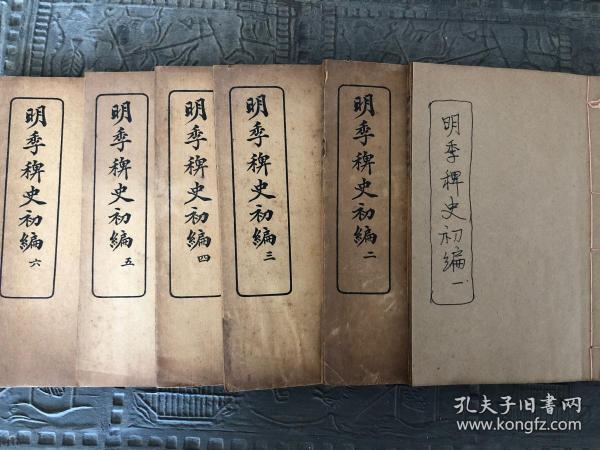 明季稗史初編一
明季稗史初編二
明季稗史初編三
明季稗史初編四
明季稗史初編五
明季稗史初編六
孔夫子旧书网
www.kongfz.com